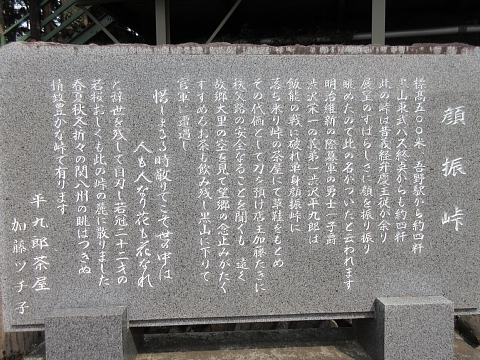 顔振峠
標高五〇〇米 吾野駅から約四粁
黒山東武バス終点からも約四粁
此の峠は昔義経弁慶主従が余り
展望のすばらしさに顔を振り振り
眺めたので此の名がついたと云われます
明治維新の際幕軍の勇士一子爵
渋沢栄一の義弟渋沢平九郎は
飯能の戦に破れ単身顔振峠に
落ち来り峠の茶屋にて草鞋をもとめ
その代価として刀を預け店主加藤たきに
秩父路の安全なることを聞くも 遠く
故郷大里の空を見て望郷の念止みがたく
すすめるお茶も飲み残し黒山に下りて
官軍に遭遇し
惜しまるる時散りてこそ世の中は
人も人なり花も花なれ
と辞世を残して自刃し若冠二十二才の
若桜おしくも此の峠の麓に散りました
春夏秋冬折々の関八州の眺はつきぬ
情緒豊かな峠で有ります
平九郎茶屋
加藤ツチ子